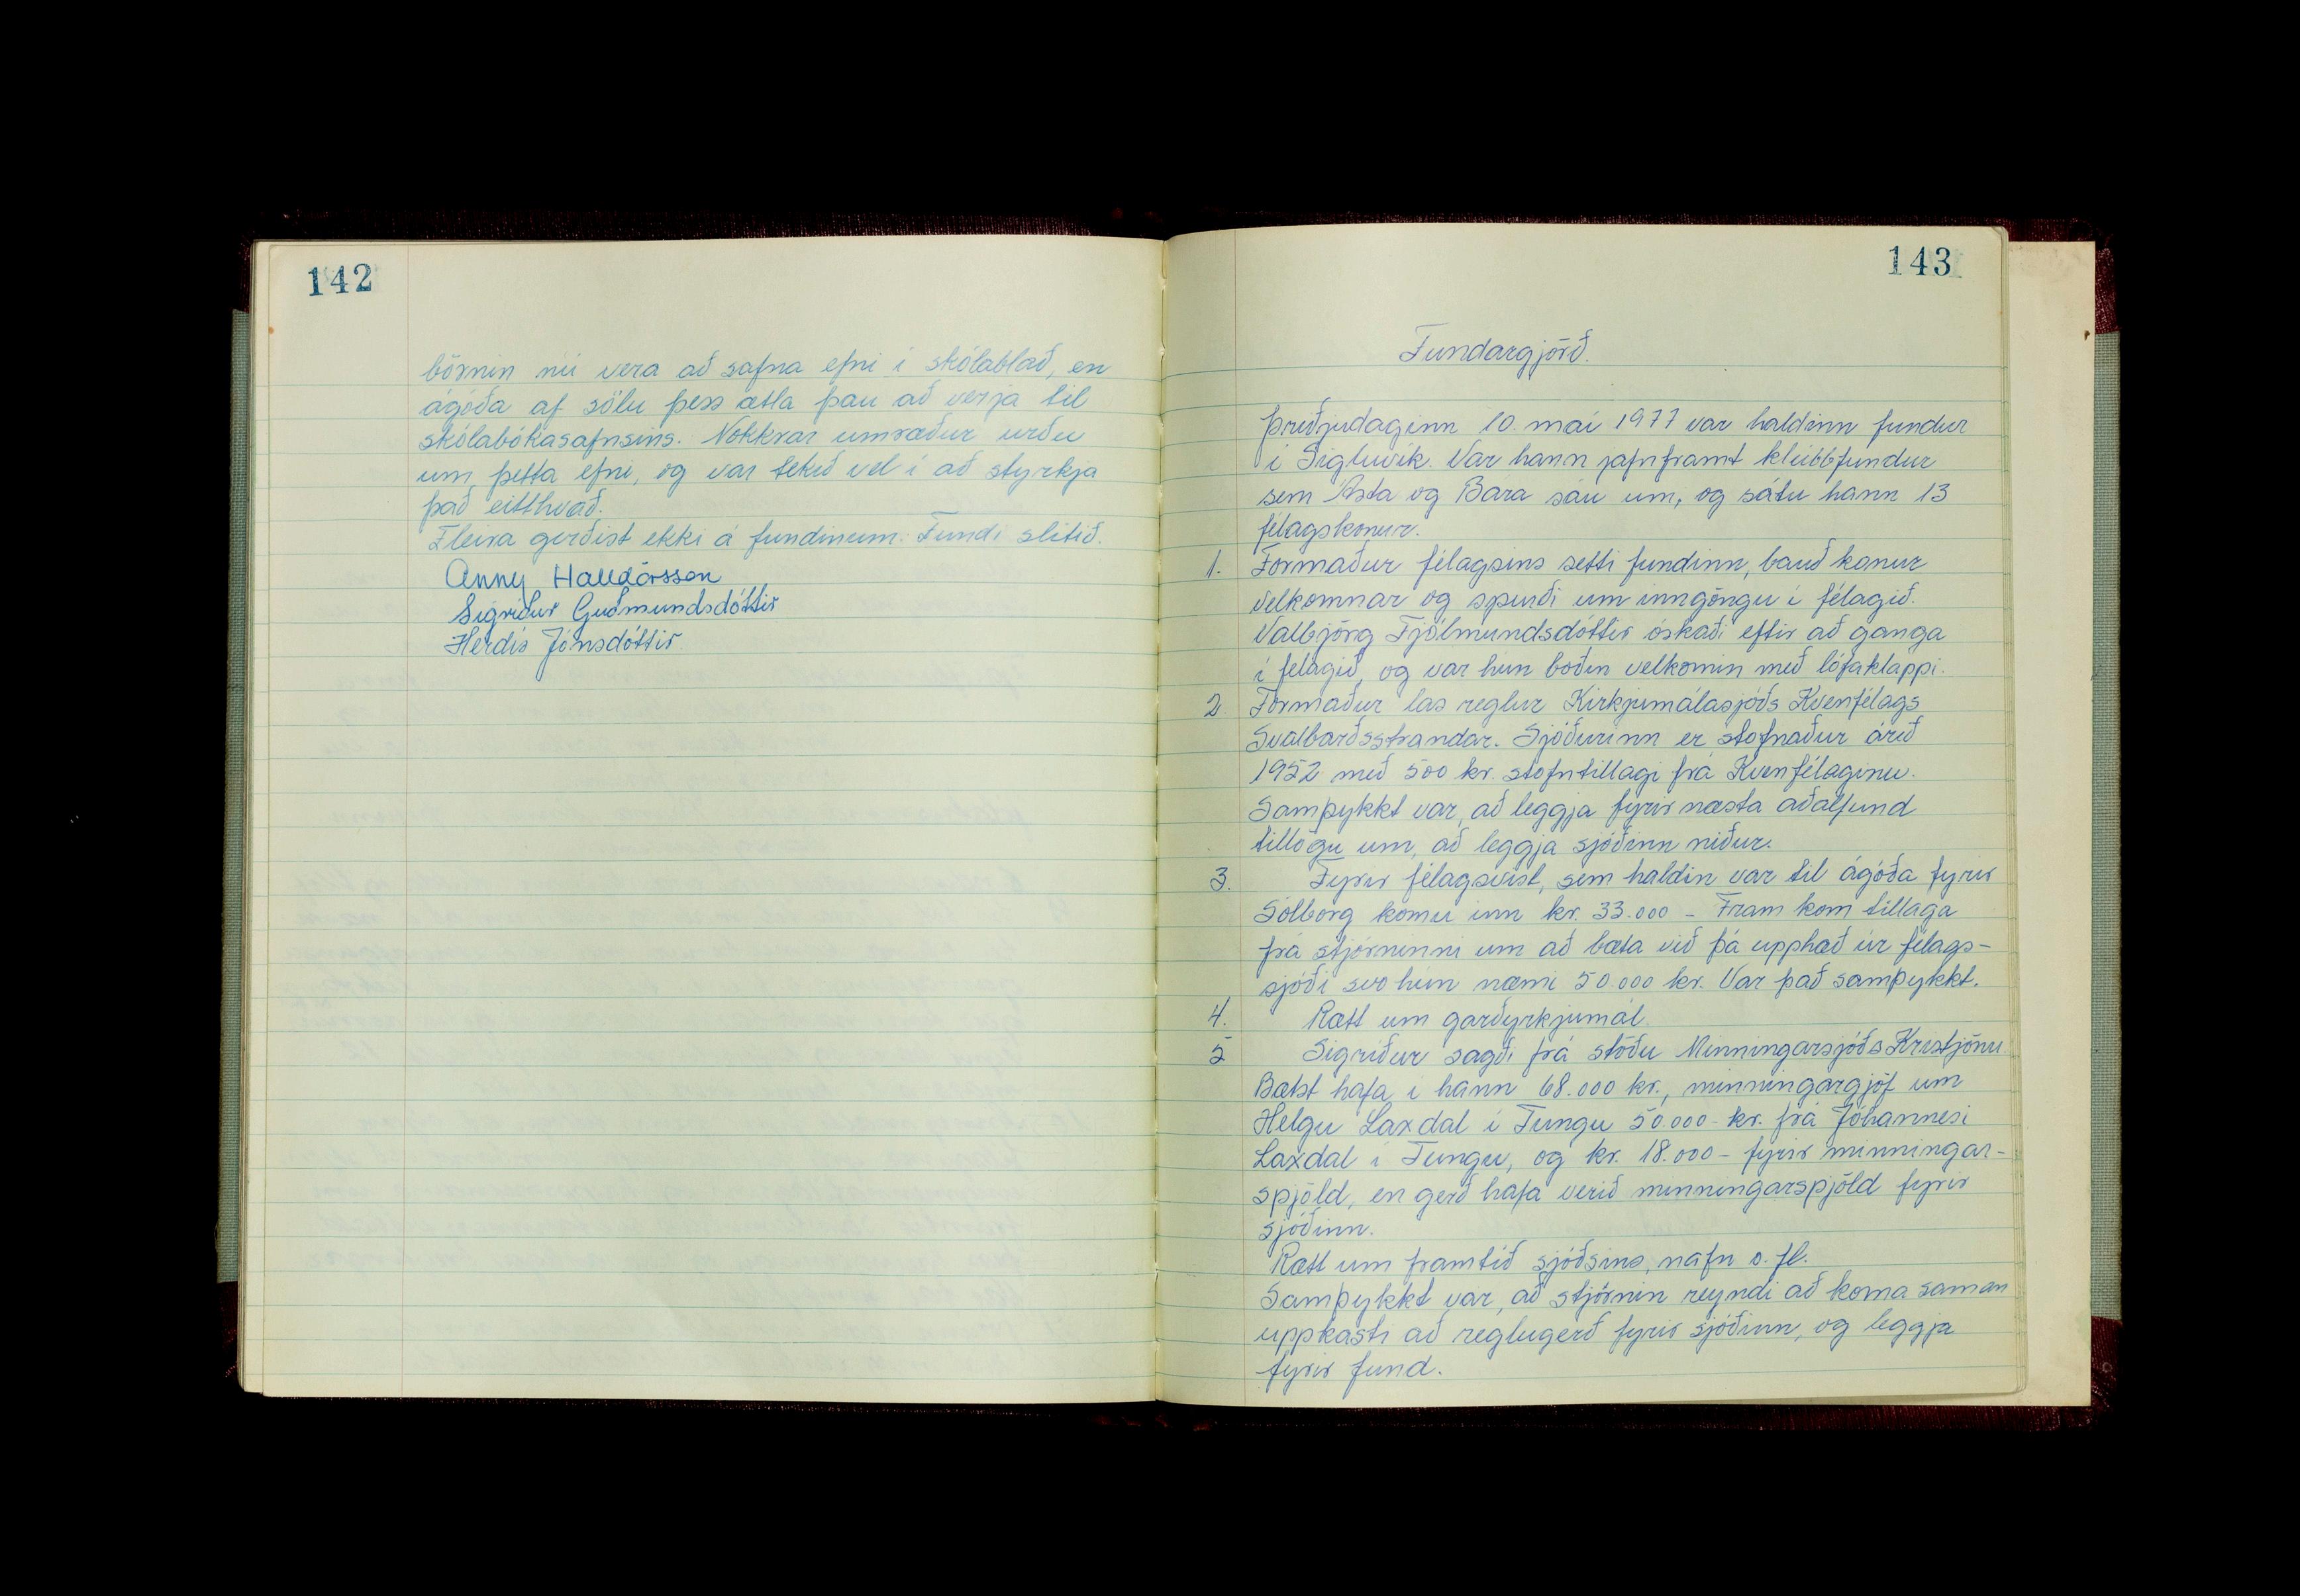 142
börnin nú vera að safna efni í skólablað, en
ágóða af sölu þess ætla þau að verja til
skólabókasafnsins. Nokkrar umræður urðu
um þetta efni, og var tekið vel í að styrkja
það eitthvað.
Fleira gerðist ekki á fundinum. Fundi slitið.
Anny Halldórsson
Sigríður Guðmundsdóttir
Herdís Jónsdóttir
143
Fundargjörð.
Þriðjudaginn 10. maí 1977 var haldinn fundur
í Sigluvík. Var hann jafnframt klúbbfundur
sem Ásta og Bára sáu um, og sátu hann 13
félagskonur.
1. Formaður félagsins setti fundinn, bauð konur
velkomnar og spurði um inngöngu í félagið.
Valbjörg Fjólmundsdóttir óskaði eftir að ganga
í félagið, og var hún boðin velkomin með lófaklappi.
2. Formaður las reglur Kirkjumálasjóðs Kvenfélags
Svalbarðsstrandar. Sjóðurinn er stofnaður árið
1952 með 500 kr. stofntillagi frá Kvenfélaginu.
Samþykkt var, að leggja fyrir næsta aðalfund
tillögu um, að leggja sjóðinn niður.
3. Fyrir félagsvist, sem haldin var til ágóða fyrir
Sólborg komu inn kr. 33.000 - Fram kom tillaga
frá stjórninni um að bæta við þá upphæð úr félags-
sjóði svo hún næmi 50.000 kr. Var það samþykkt.
4. Rætt um garðyrkjumál.
5 Sigríður sagði frá stöðu Minningarsjóðs Kristjönu.
Bætst hafa í hann 68.000 kr., minningargjöf um
Helgu Laxdal í Tungu 50.000 - kr. frá Jóhannesi
Laxdal í Tungu, og kr. 18.000 - fyrir minningar-
spjöld, en gerð hafa verið minningarspjöld fyrir
sjóðinn.
Rætt um framtíð sjóðsins, nafn o. fl.
Samþykkt var, að stjórnin reyndi að koma saman
uppkasti að reglugerð fyrir sjóðinn, og leggja
fyrir fund.